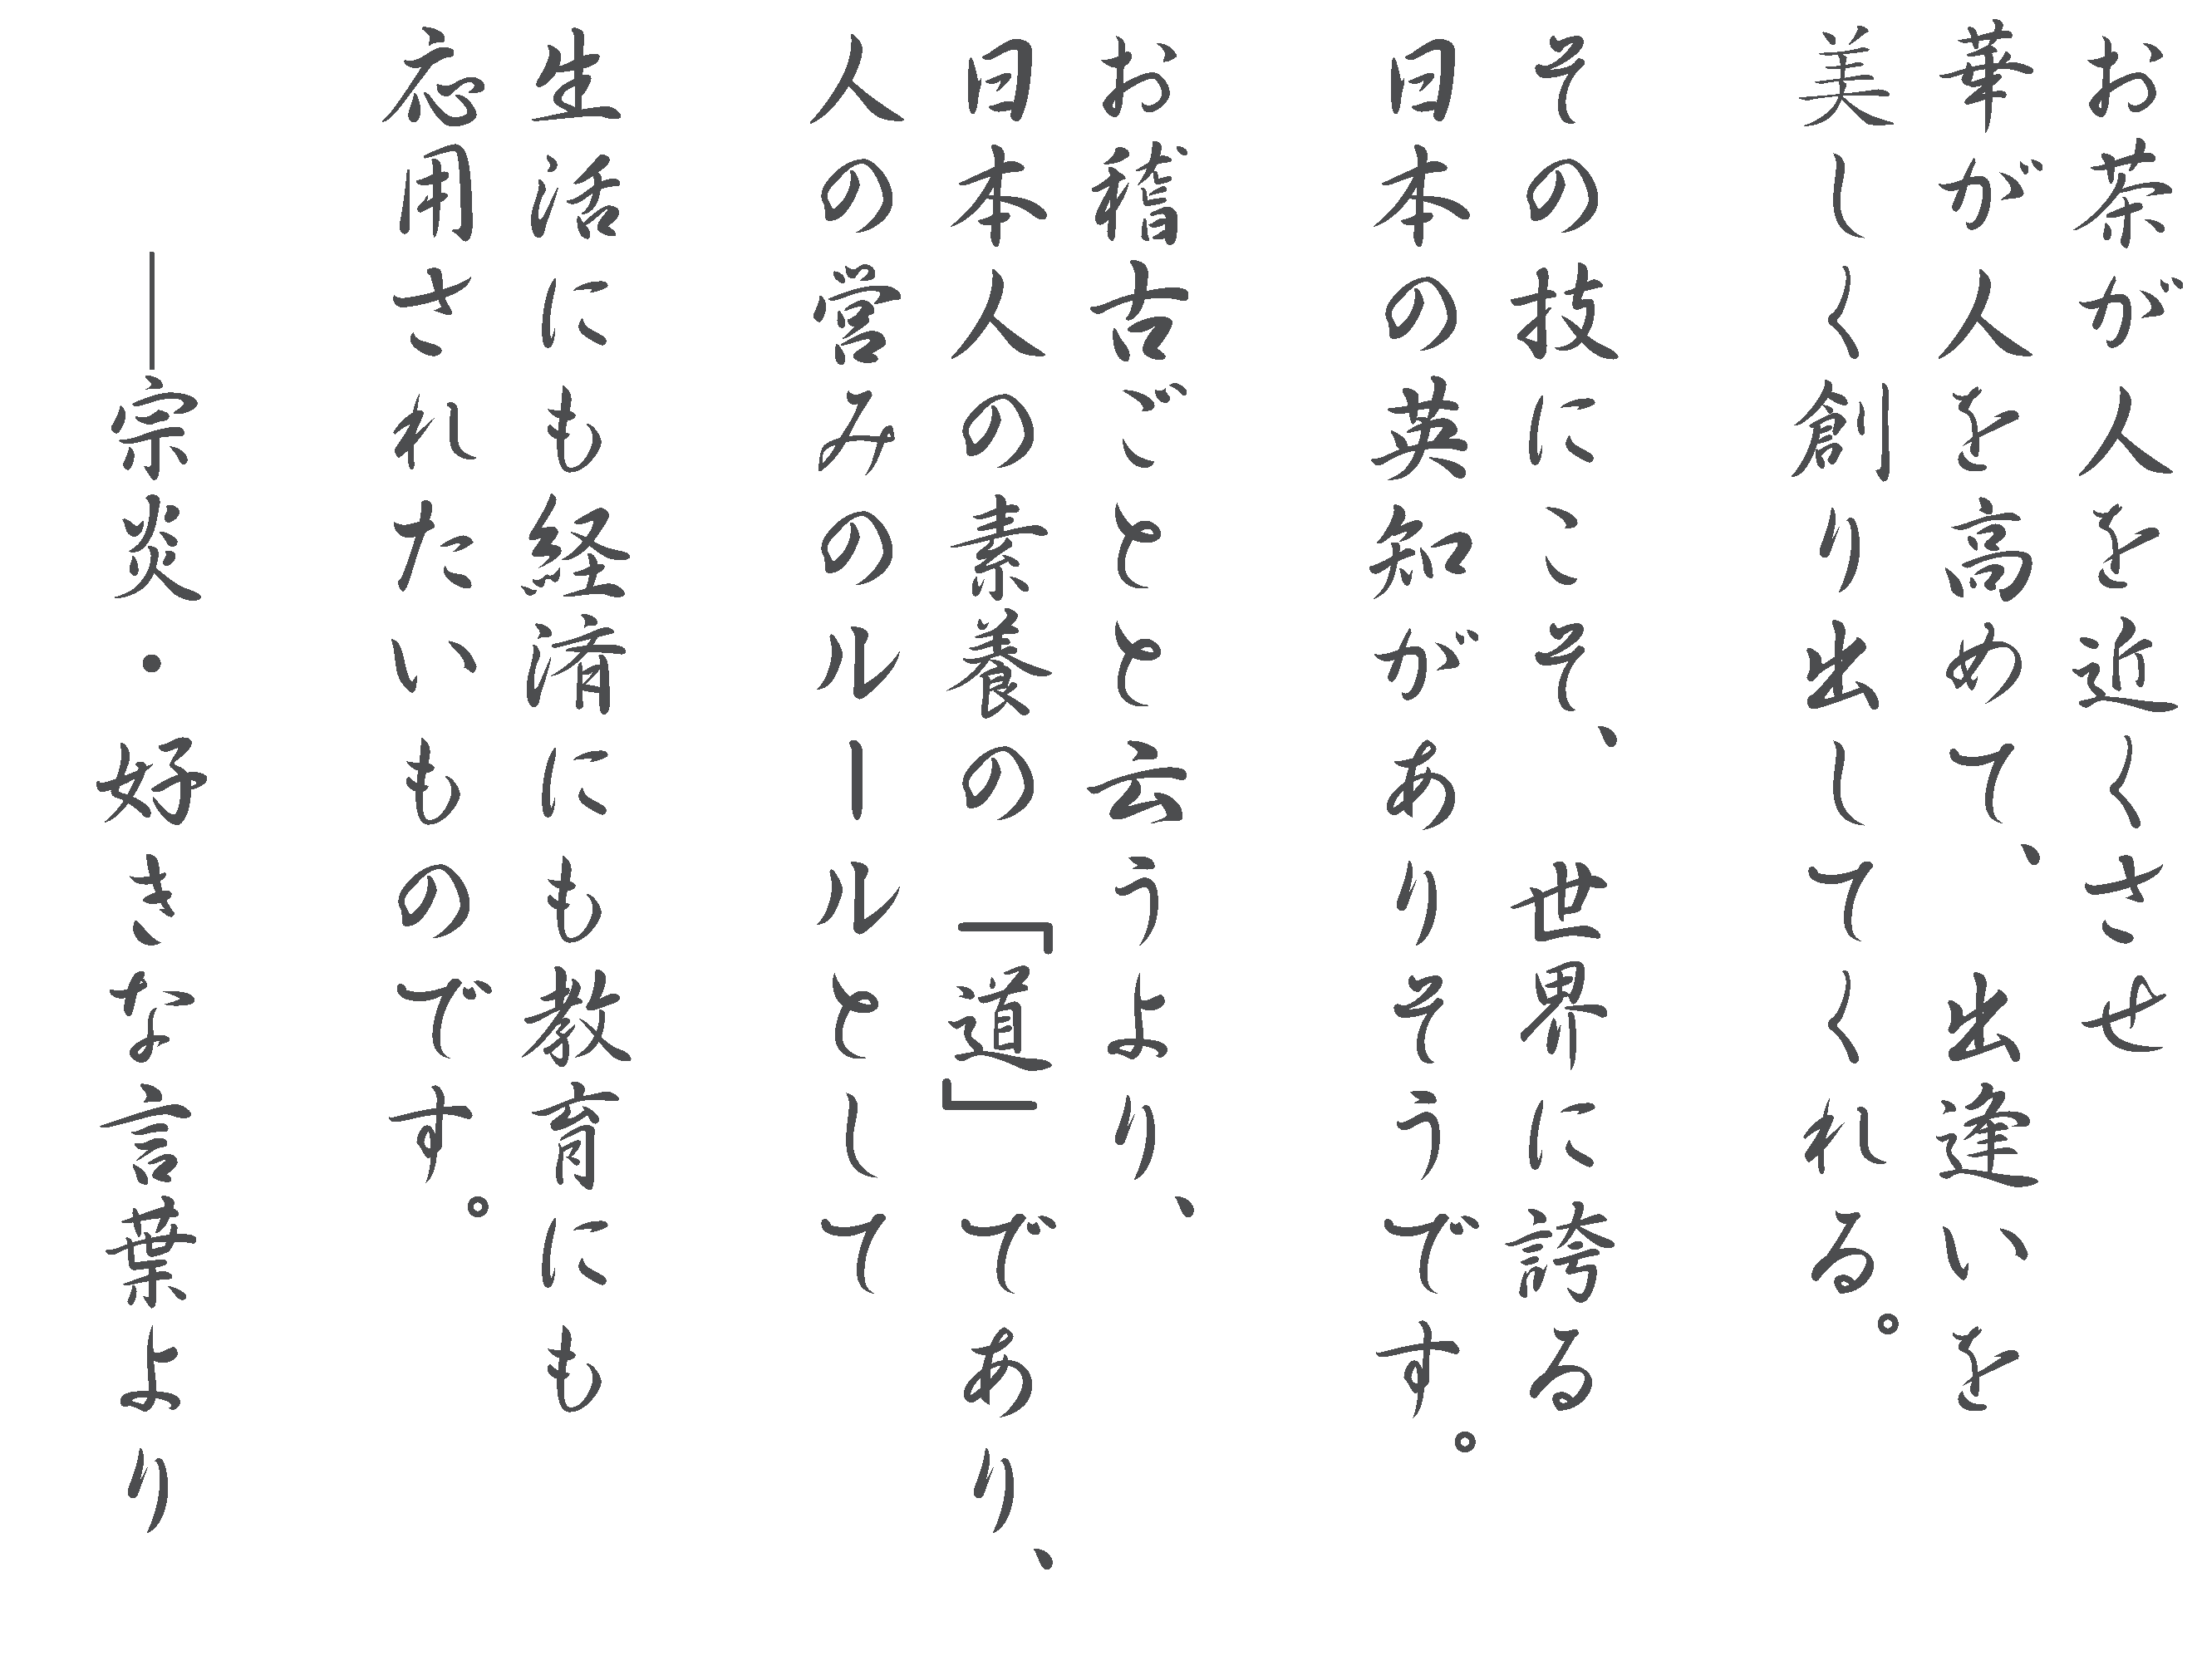 お茶が人を近くさせ
華が人を高めて、出逢いを
美しく創り出してくれる。
その技にこそ、世界に誇る
日本の英知がありそうです。
お稽古ごとと云うより、
日本人の素養の「道」であり、
人の営みのルールとして
生活にも経済にも教育にも
応用されたいものです。
――宗炎・好きな言葉より